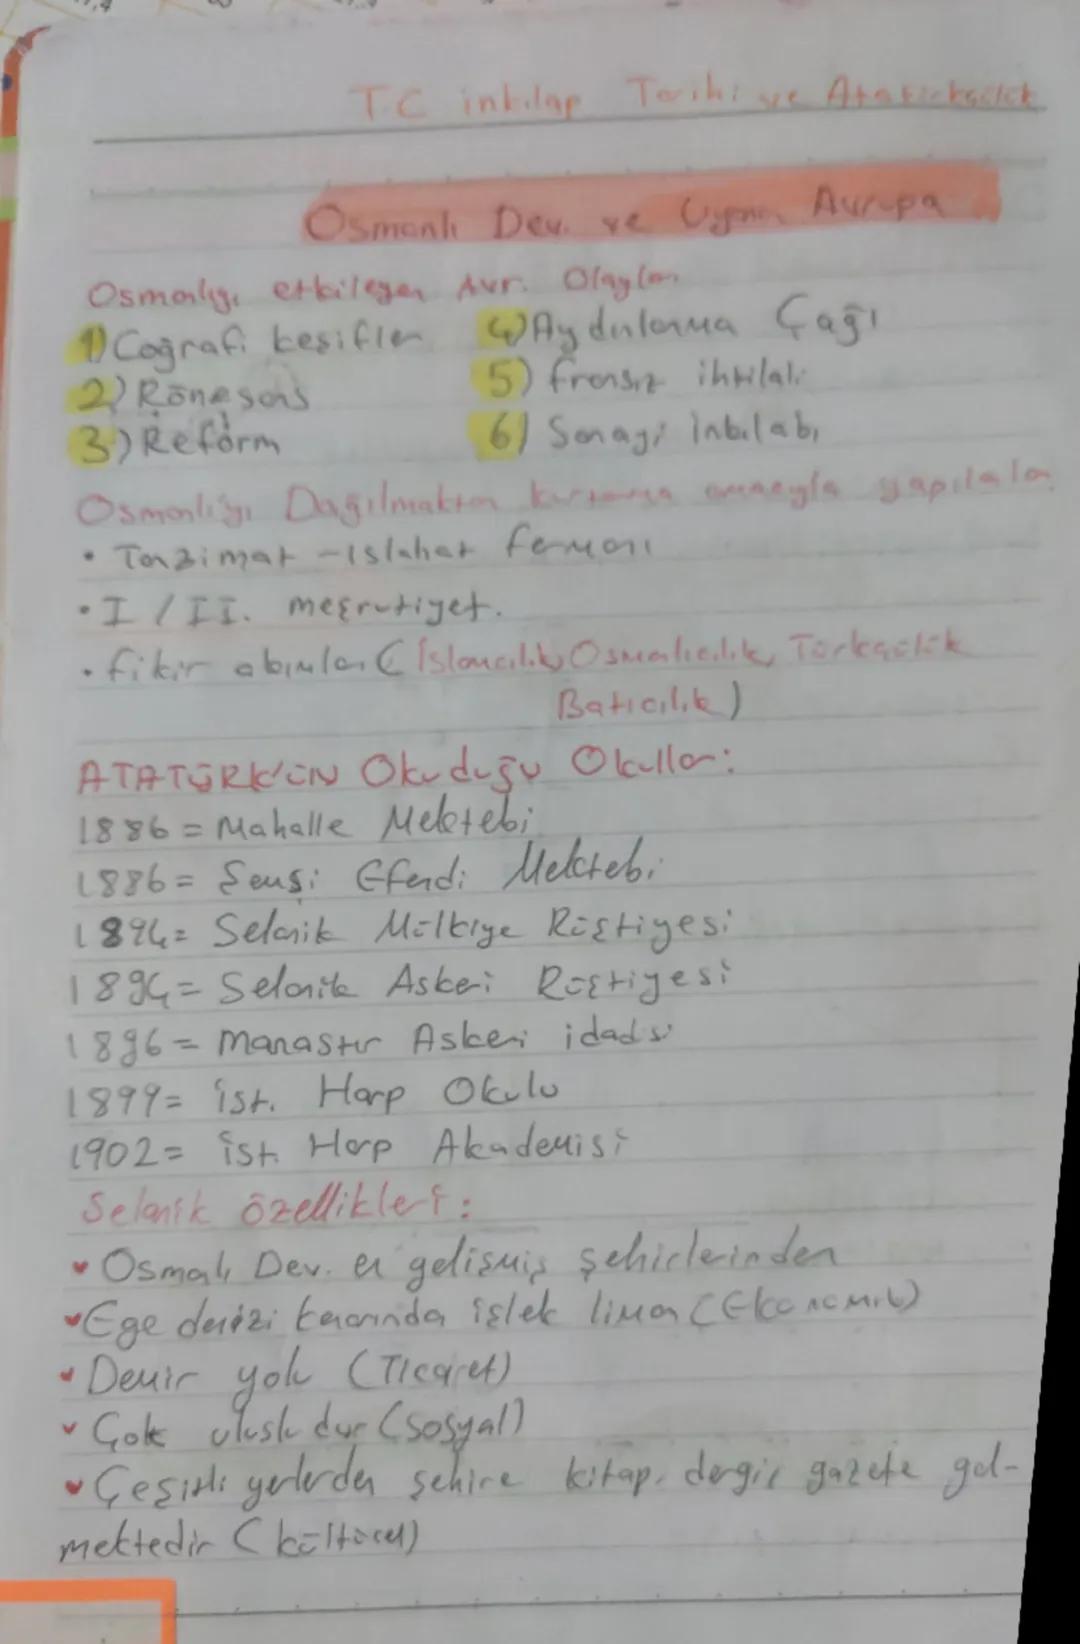 T.C inkılap Tarihi ve Atatürkçülük
Osmanlı Dev. ve Uyanan Avrupa
Osmanlıyı etkileyen Avr. Olayları
1) Coğrafi keşifler
2) Rönesans
3) Reform
4) Aydınlanma Çağı
5) fransız ihtilali
6) Sanayi inkılabı
Osmanlıyı Dağılmaktan kurtarma amacıyla yapılalar
• Tanzimat - Islahat fermanı
• I / II. meşrutiyet.
• fikir akımları (İslamcılık, Osmalıcılık, Türkçülük
Batıcılık)
ATATÜRK'ÜN Okuduğu Okullar:
1886 = Mahalle Mektebi
1886 = Şemsi Efendi Mektebi
1894 = Selanik Mülkiye Rüştiyesi
1894 = Selanik Askeri Rüştiyesi
1896 = Manastır Askeri idadisi
1899 = ist. Harp Okulu
1902 = ist. Harp Akademisi
Selanik özellikleri:
Osmalı Dev. en gelişmiş şehirlerinden
Ege denizi kenarında işlek liman (Ekonomik)
Demir yolu (Ticaret)
Çok ulusludur (sosyal)
Çeşitli yerlerden şehire kitap, dergi, gazete gel-
mektedir (kültürel)